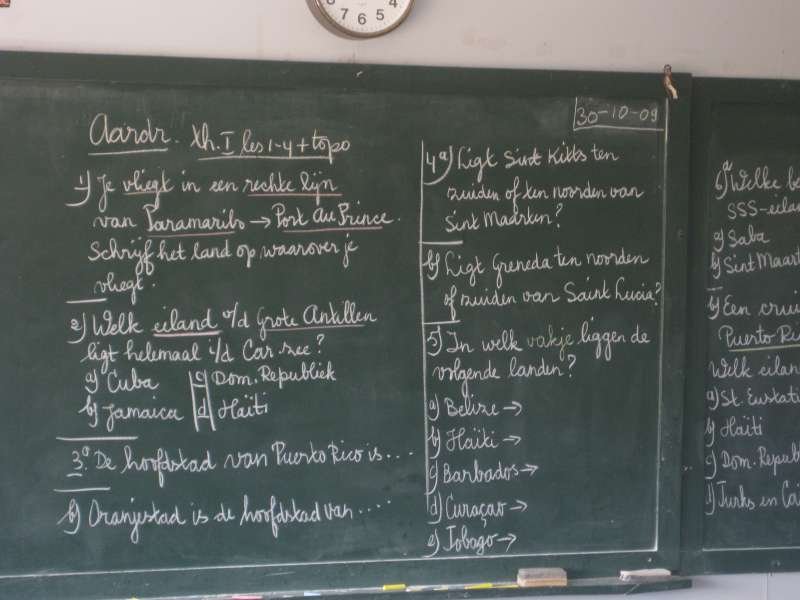 8 7 6 5 4
Aardr. Th. I les 1-4 + topo
1) Je vliegt in een rechte lijn
van Paramaribo → Port Au Prince.
Schrijf het land op waarover je
vliegt.
2) Welk eiland v/d Grote Antillen
ligt helemaal i/d Car. zee?
a) Cuba
b) Jamaica
c) Dom. Republiek
d) Haïti
3a. De hoofdstad van Puerto Rico is ...
b) Oranjestad is de hoofdstad van ....
30-10-09
4a) Ligt Sint Kitts ten
zuiden of ten noorden van
Sint Maarten?
b) Ligt Greneda ten noorden
of zuiden van Saint Lucia?
5) In welk vakje liggen de
volgende landen?
a) Belize →
b) Haïti →
c) Barbados →
d) Curaçao →
e) Tobago →
6a) Welke
SSS-eila
a) Saba
b) Sint Maart
b) Een crui
Puerto Ric
Welk eilan
a) St. Eustati
b) Haïti
c) Dom. Repub
d) Turks en Cai